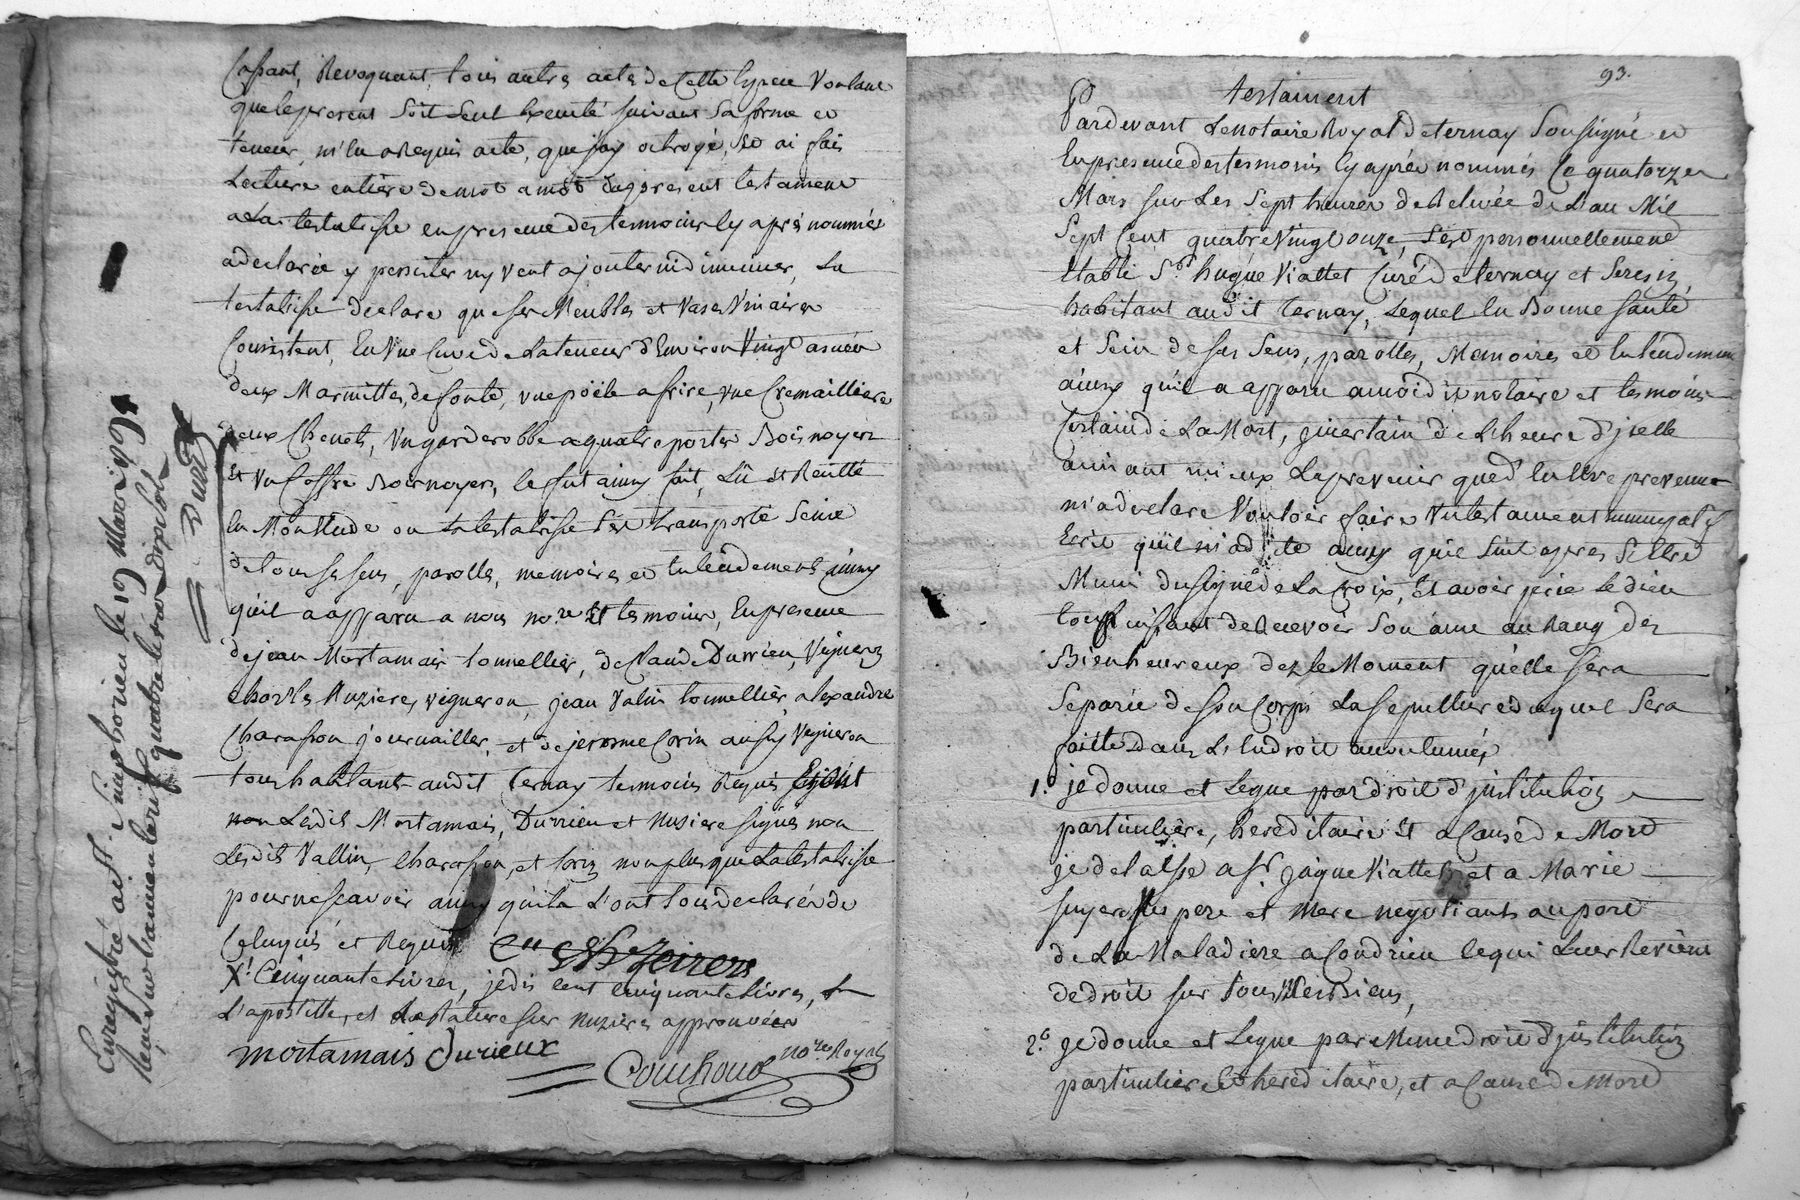 Cassant, Revoquant, tous autres actes de Cette Espece Voulant
que le present Soit Seul Executé suivant Sa forme et
teneur, m'en a Requis acte, que j'ay octroyé, et ai fais
Lecture entiere de mot a mot du present testament
a La testatrisse en presence des temoins Cy aprés nommés
a declarée y persister ny veut ajouter ni diminuer, La
testatrisse declare que ses Meubles et Vases Vinaires
Consistent, En Une Cuve de La teneur d'Environ Vingt anées
deux Marmittes, de fonte, une poële a frire, une Cremailliere
deux Chenets, Un garderobbe a quatre portes Bois noyer
Et Un Coffre Bois noyer, le fut ainsy fait, Lû et Recitté
en Mon Etude ou La testatrisse s'est transporté Seine
de tous ses sens, parolle, memoires et entendement ainsy
qu'il a apparu a nous no.re Et temoins, En presence
de jean Mortamais tonnellier, de Claude Durrieu, Vigneron
Charles Muziere, vigneron, jean Valin tonnellier, alexandre
Charasson journaillier, et de jerosme Corin aussy Vigneron
tous habitants audit Ternay temoins Requis
Lesdits Mortamais, Durrieu et Musiere signés non
Lesdits Vallin, Charasson, et Corin non plus que La testatrisse
pour ne scavoir ainsy qu'ils L'ont tous declarés de
Ce Enquis et Requis
X.t Cinquante Livres, je dis cent cinquante Livres,
L'apostille, et La Rature sur Muziere approuvée
mortamais Durieux
Couchoud no.re Royal
Enregistré a St Simphorien le 19 Mars 1791
Reçu sur l'ancien tarif quatre livres dix sols
= Duret =
93.
testament
Pardevant Le notaire Royal de ternay Soussigné et
En presence des temoins Cy aprés nommés Ce quatorze
Mars sur Les Sept heures de Relevée de L'an Mil
Sept Cent quatre Vingt onze, S'est personnellement
Etabli S.r hugue Viattet Curé de ternay et Seresin
habitant audit Ternay, Lequel En Bonne santé
et Sein de ses Sens, parolles, Memoires et Entendement
ainsy qu'il a apparu a moi dit notaire et temoins
Certain de La Mort, incertain de L'heure d'icelle
aimant mieux La prevenir que d'En Etre prevenu
m'a declaré Vouloir faire Un testament nuncupatif
Ecrit qu'il m'a dicté ainsy que Suit apres S'Etre
Muni du Signe de La Croix, Et avoir prié Le dieu
tout puissant de Recevoir Son ame au Rang des
Bienheureux dez le Moment qu'elle sera
Separée de son Corps La sepulture duquel Sera
faitte dans L'Endroit accoutumés,
1.° je donne et Legue par droit d'institution
particuliere, hereditaire Et a Cause de Mort
je delaisse a Sr. jaque Viattet et a Marie
suyer Ses pere et Mere negotiants au port
de La Maladiere a Condrieu le qui Leur Revient
de droit sur tous Mes Biens,
2.° je donne et Legue par Meme droit d'institution
particuliere Et hereditaire, et a Cause de Mort